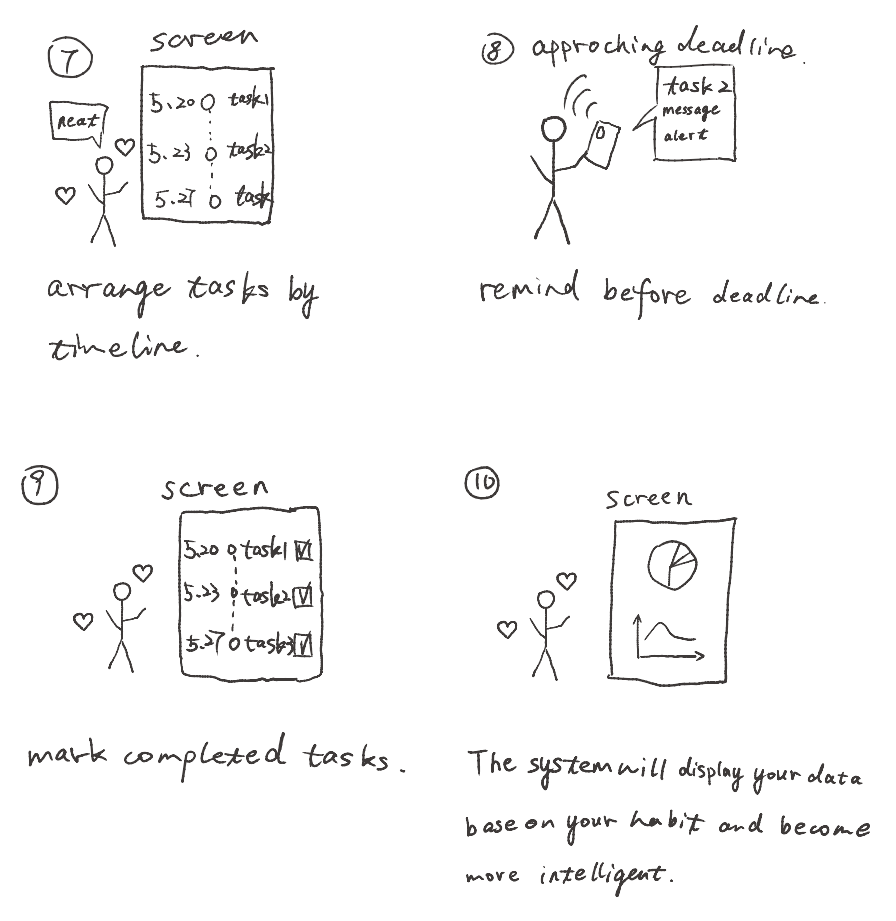 7
screen
neat
5.20 task1
5.23 task2
5.27 task
arrange tasks by
timeline.
8 approching deadline.
task2
message
alert
remind before deadline.
9
screen
5.20 task1
5.23 task2
5.27 task3
mark completed tasks.
10
screen
The system will display your data
base on your habit and become
more intelligent.